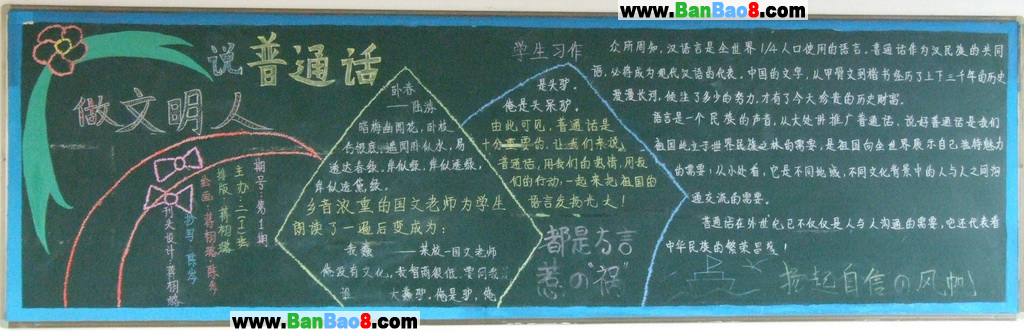 www.BanBao8.com
www.BanBao8.com
说普通话
做文明人
期号:第1期
主办:二(1)班
排版:蒋栩璐
卧春
——陆游
暗梅幽闻花,卧枝
伤恨底,遥闻卧似水,易
透达春绿。岸似绿,岸似透绿,
岸似透黛绿。
乡音浓重的国文老师为学生
朗读了一遍后变成:
我蠢
——某校一国文老师
俺没有文化,我智商很低,要问我
谁 大蠢驴。俺是驴,俺
是头驴,
俺是头呆驴。
由此可见,普通话是
十分重要的,让我们来说
普通话,用我们的热情,用我
们的行动,一起来把祖国的
语言发扬光大!
都是方言
惹の“祸”
学生习作
众所周知,汉语言是全世界1/4人口使用的语言。普通话作为汉民族的共同
语,必将成为现代汉语的代表。中国的文字,从甲骨文到楷书经历了上下三千年的历史
漫漫长河,倾注了多少的努力,才有了今天珍贵的历史财富。
语言是一个民族的声音,从大处讲推广普通话,说好普通话是我们
祖国屹立于世界民族之林的需要,是祖国向全世界展示自己独特魅力
的需要;从小处看,它是不同地域,不同文化背景中的人与人之间沟
通交流的需要。
普通话在外世纪已不仅仅是人与人沟通的需要,它还代表着
中华民族的繁荣昌盛!
扬起自信の风帆
www.BanBao8.com